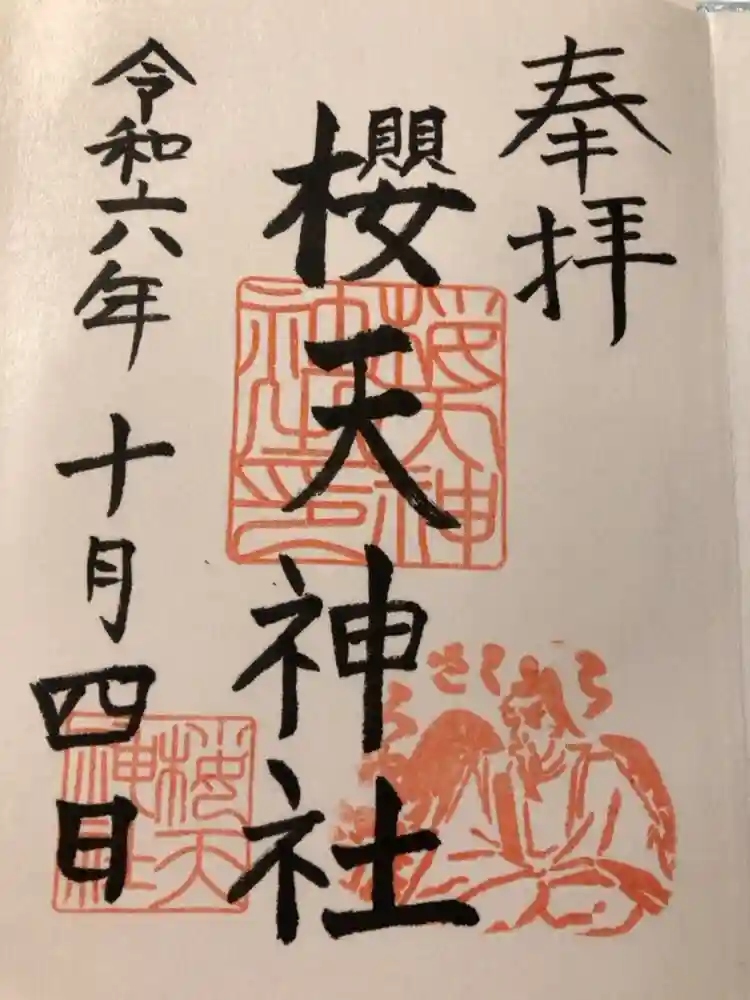 奉拝
櫻天神社
令和六年 十月四日
桜天神
社之印
桜天
神社